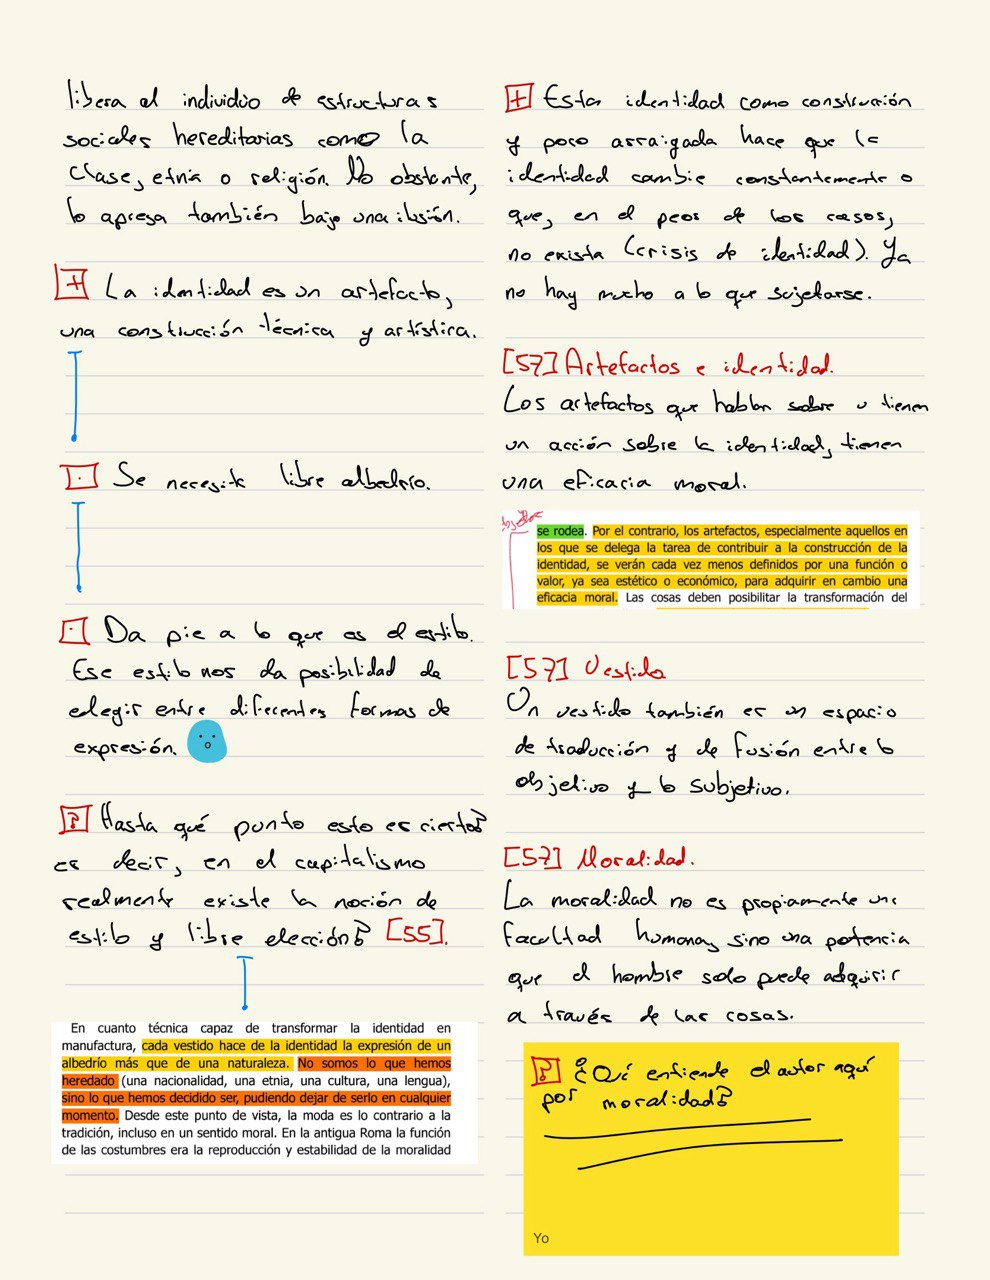 libera al individuo de estructuras
sociales hereditarias como la
clase, etnia o religión. No obstante,
lo apresa también bajo una ilusión.
[+] La identidad es un artefacto,
una construcción técnica y artística.
[.] Se necesita libre albedrío.
[.] Da pie a lo que es el estilo.
Ese estilo nos da posibilidad de
elegir entre diferentes formas de
expresión.
[?] Hasta qué punto esto es cierto?
es decir, en el capitalismo
realmente existe la noción de
estilo y libre elección? [55].
En cuanto técnica capaz de transformar la identidad en
manufactura, cada vestido hace de la identidad la expresión de un
albedrío más que de una naturaleza. No somos lo que hemos
heredado (una nacionalidad, una etnia, una cultura, una lengua),
sino lo que hemos decidido ser, pudiendo dejar de serlo en cualquier
momento. Desde este punto de vista, la moda es lo contrario a la
tradición, incluso en un sentido moral. En la antigua Roma la función
de las costumbres era la reproducción y estabilidad de la moralidad
[+] Esta identidad como construcción
y poco arraigada hace que la
identidad cambie constantemente o
que, en el peos de los casos,
no exista (crisis de identidad). Ya
no hay mucho a lo que sujetarse.
[57] Artefactos e identidad.
Los artefactos que hablan sobre o tienen
un acción sobre la identidad, tienen
una eficacia moral.
se rodea. Por el contrario, los artefactos, especialmente aquellos en
los que se delega la tarea de contribuir a la construcción de la
identidad, se verán cada vez menos definidos por una función o
valor, ya sea estético o económico, para adquirir en cambio una
eficacia moral. Las cosas deben posibilitar la transformación del
[57] Vestido
Un vestido también es un espacio
de traducción y de fusión entre lo
objetivo y lo subjetivo.
[57] Moralidad.
La moralidad no es propiamente una
facultad humana, sino una potencia
que el hombre solo puede adquirir
a través de las cosas.
[?] ¿Qué entiende el autor aquí
por moralidad?
Yo